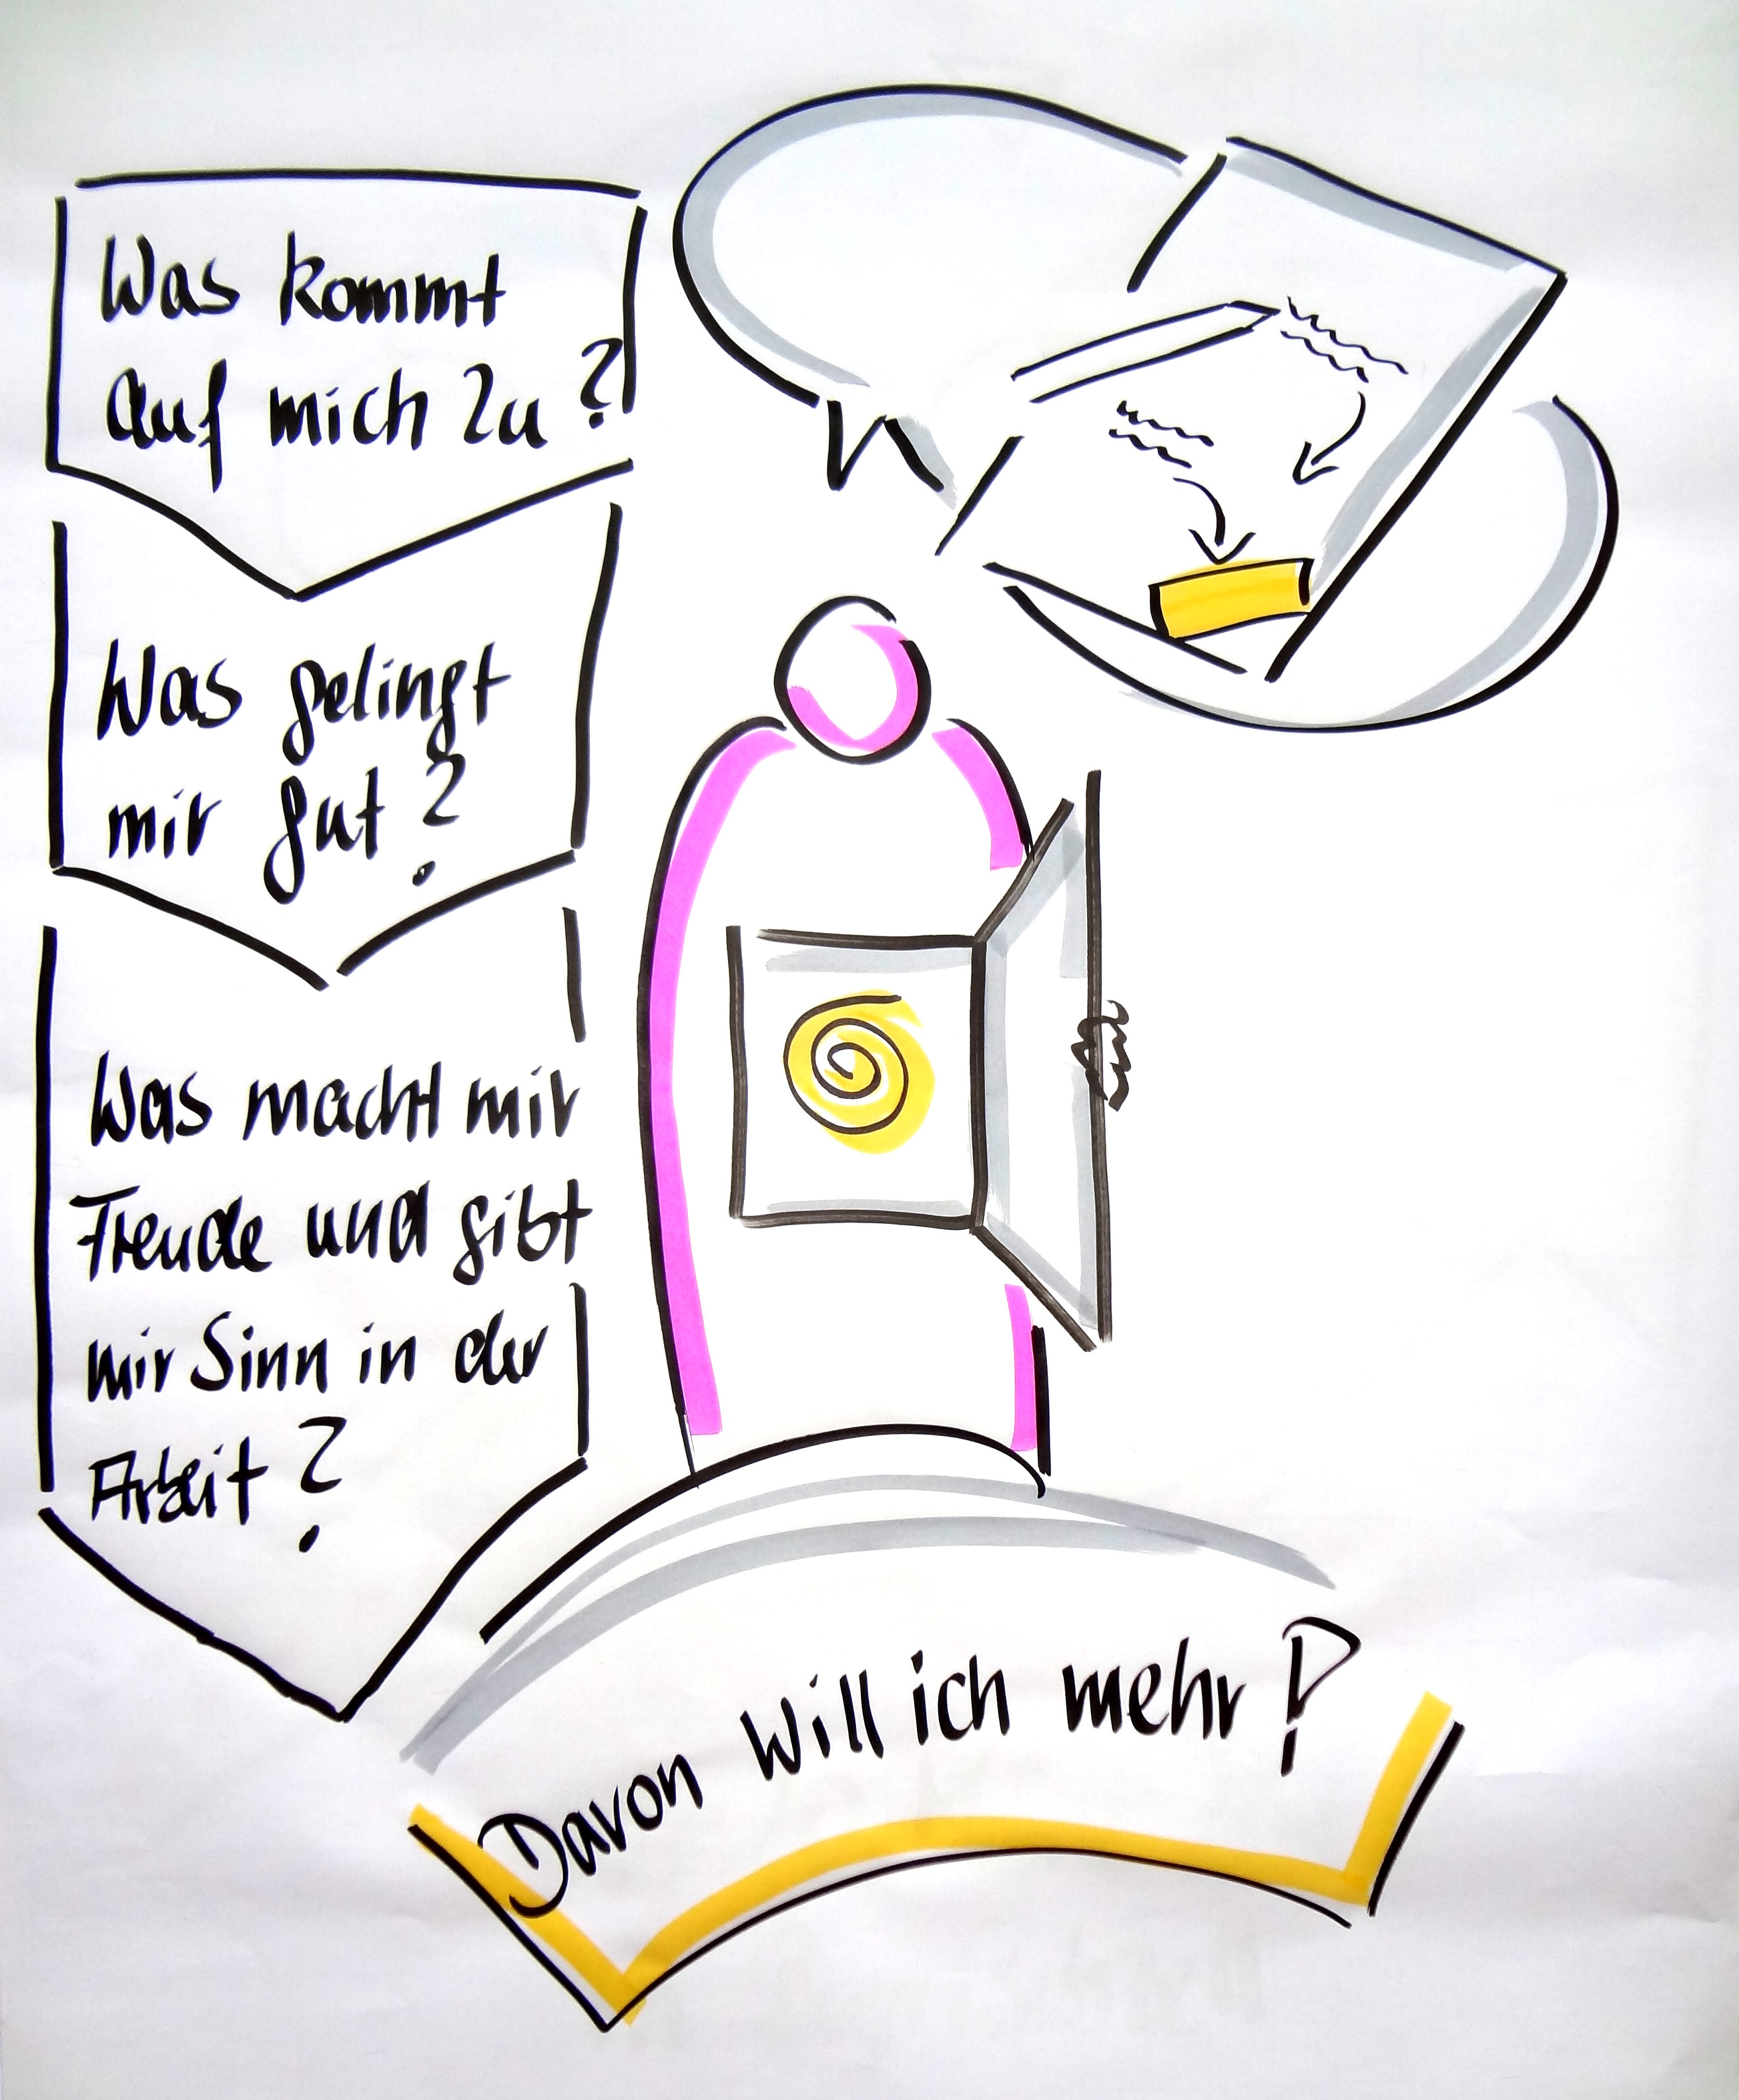 Was kommt
auf mich zu?
Was gelingt
mir gut?
Was macht mir
Freude und gibt
mir Sinn in der
Arbeit?
Davon will ich mehr!